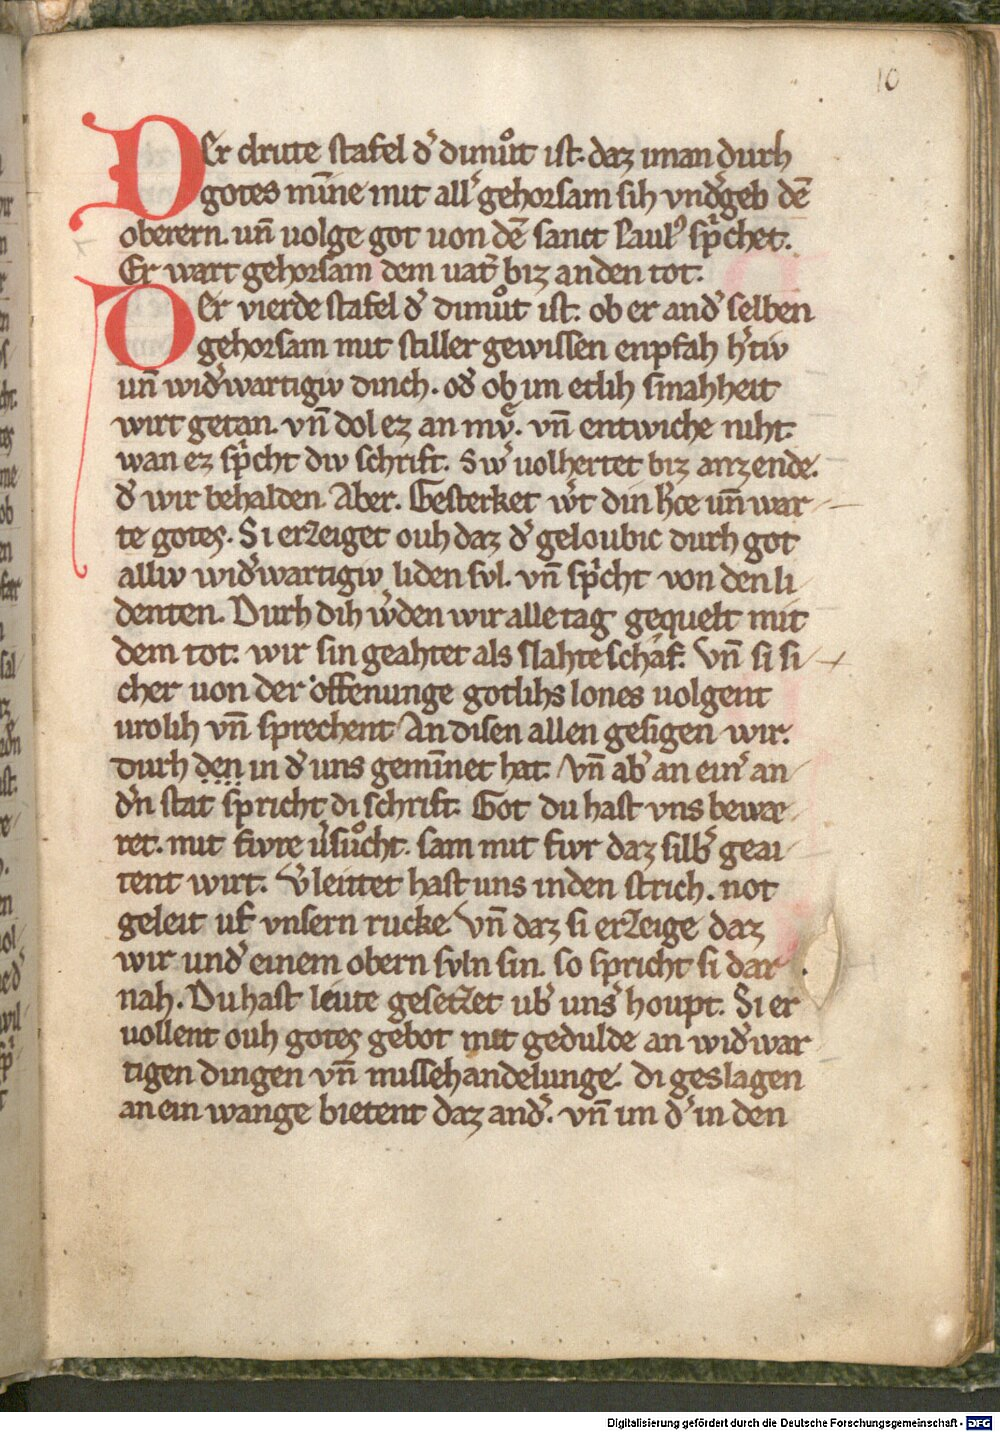 10
Der drite stafel d᾽ dimuͦt ist. daz man durh
gotes mīne mit all᾽ gehorsam sih vnd᾽geb dē
oberern. un̄ volge got von dē sanct Paul᾽ sp᾽chet.
Er wart gehorsam dem vat᾽ biz an den tot.
Der vierde stafel d᾽ dimuͦt ist. ob er and᾽ selben
gehorsam mit stiller gewissen enpfah h᾽tiv
un̄ wid᾽wartigiv dinch. od᾽ ob im etlih smahheit
wirt getan. vn̄ dol ez an mv᾽. vn̄ entwiche niht.
wan ez sp᾽cht div schrift. Sw᾽ volhertet biz anz ende.
d᾽ wir behalden. Aber. Gesterket w᾽t din h᾽ce un̄ war
te gotes. Si erzeiget ouh daz d᾽ geloubic durh got
alliv wid᾽wartigiv liden svl. vn̄ sp᾽cht von den li
denten. Durh dih w᾽den wir alle tag gequelt mit
dem tot. wir sin geahtet als slahte schaf. Vn̄ si si
cher von der offenunge gotlihs lones volgent
vrolih vn̄ sprechent An disen allen gesigen wir.
durh den in d᾽ uns gemīnet hat. Vn̄ ab᾽ an ein᾽ an
d᾽n stat spricht di schrift. Got du hast vns bewæ
ret. mit fivre v᾽suͦcht. sam mit fivr daz silb᾽ geai
tent wirt. V᾽leitet hast uns in den strich. not
geleit uf vnsern rucke. Vn̄ daz si erzeige daz
wir und᾽ einem obern svln sin. so spricht si dar
nah. Du hast leute gesetzet ub᾽ uns᾽ houpt. Si er
vollent ouh gotes gebot mit gedulde an wid᾽war
tigen dingen vn̄ missehandelunge. di geslagen
an ein wange bietent daz and᾽. vn̄ im d᾽ in den
Digitalisierung gefördert durch die Deutsche Forschungsgemeinschaft - DFG